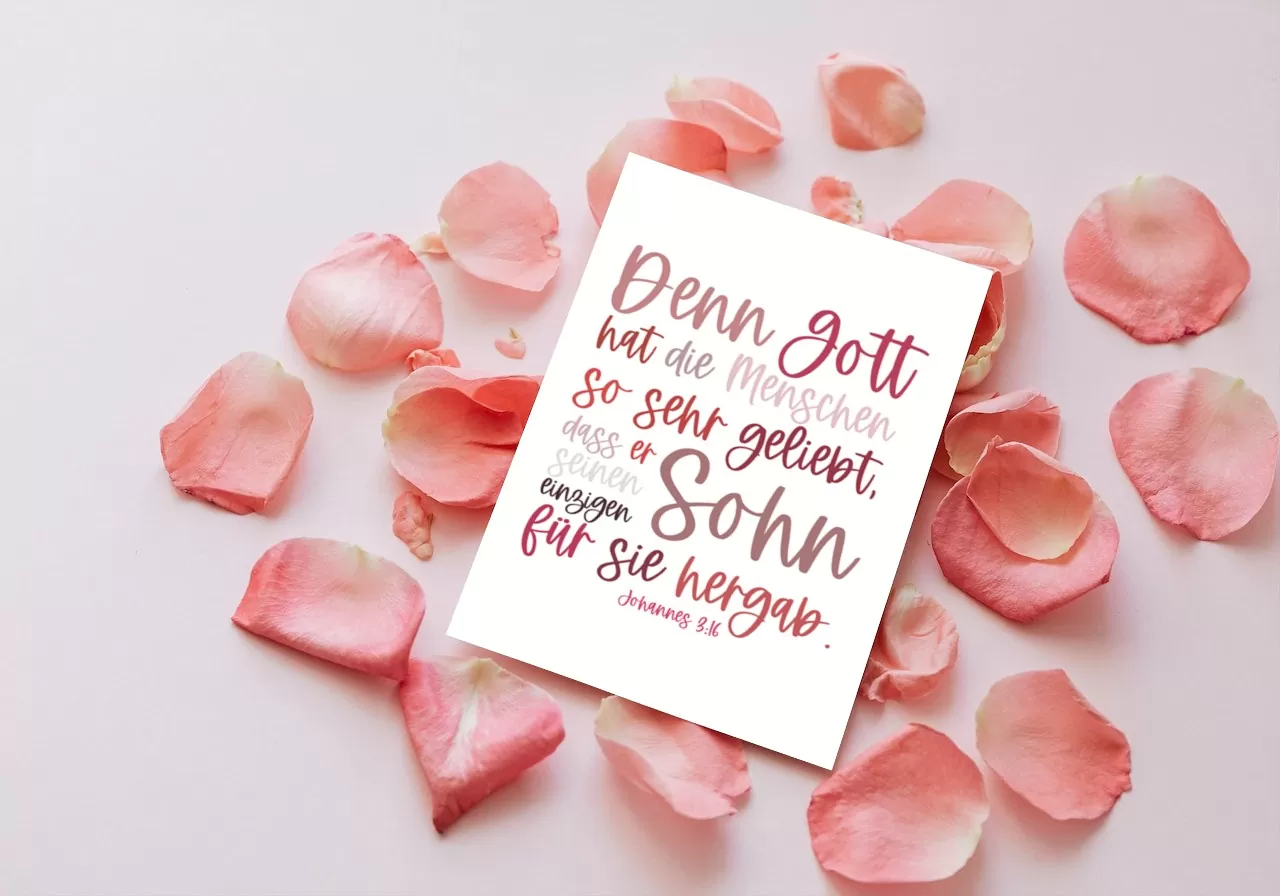 Denn Gott
hat die Menschen
so sehr geliebt,
dass er
seinen
einzigen Sohn
für sie hergab.
Johannes 3:16